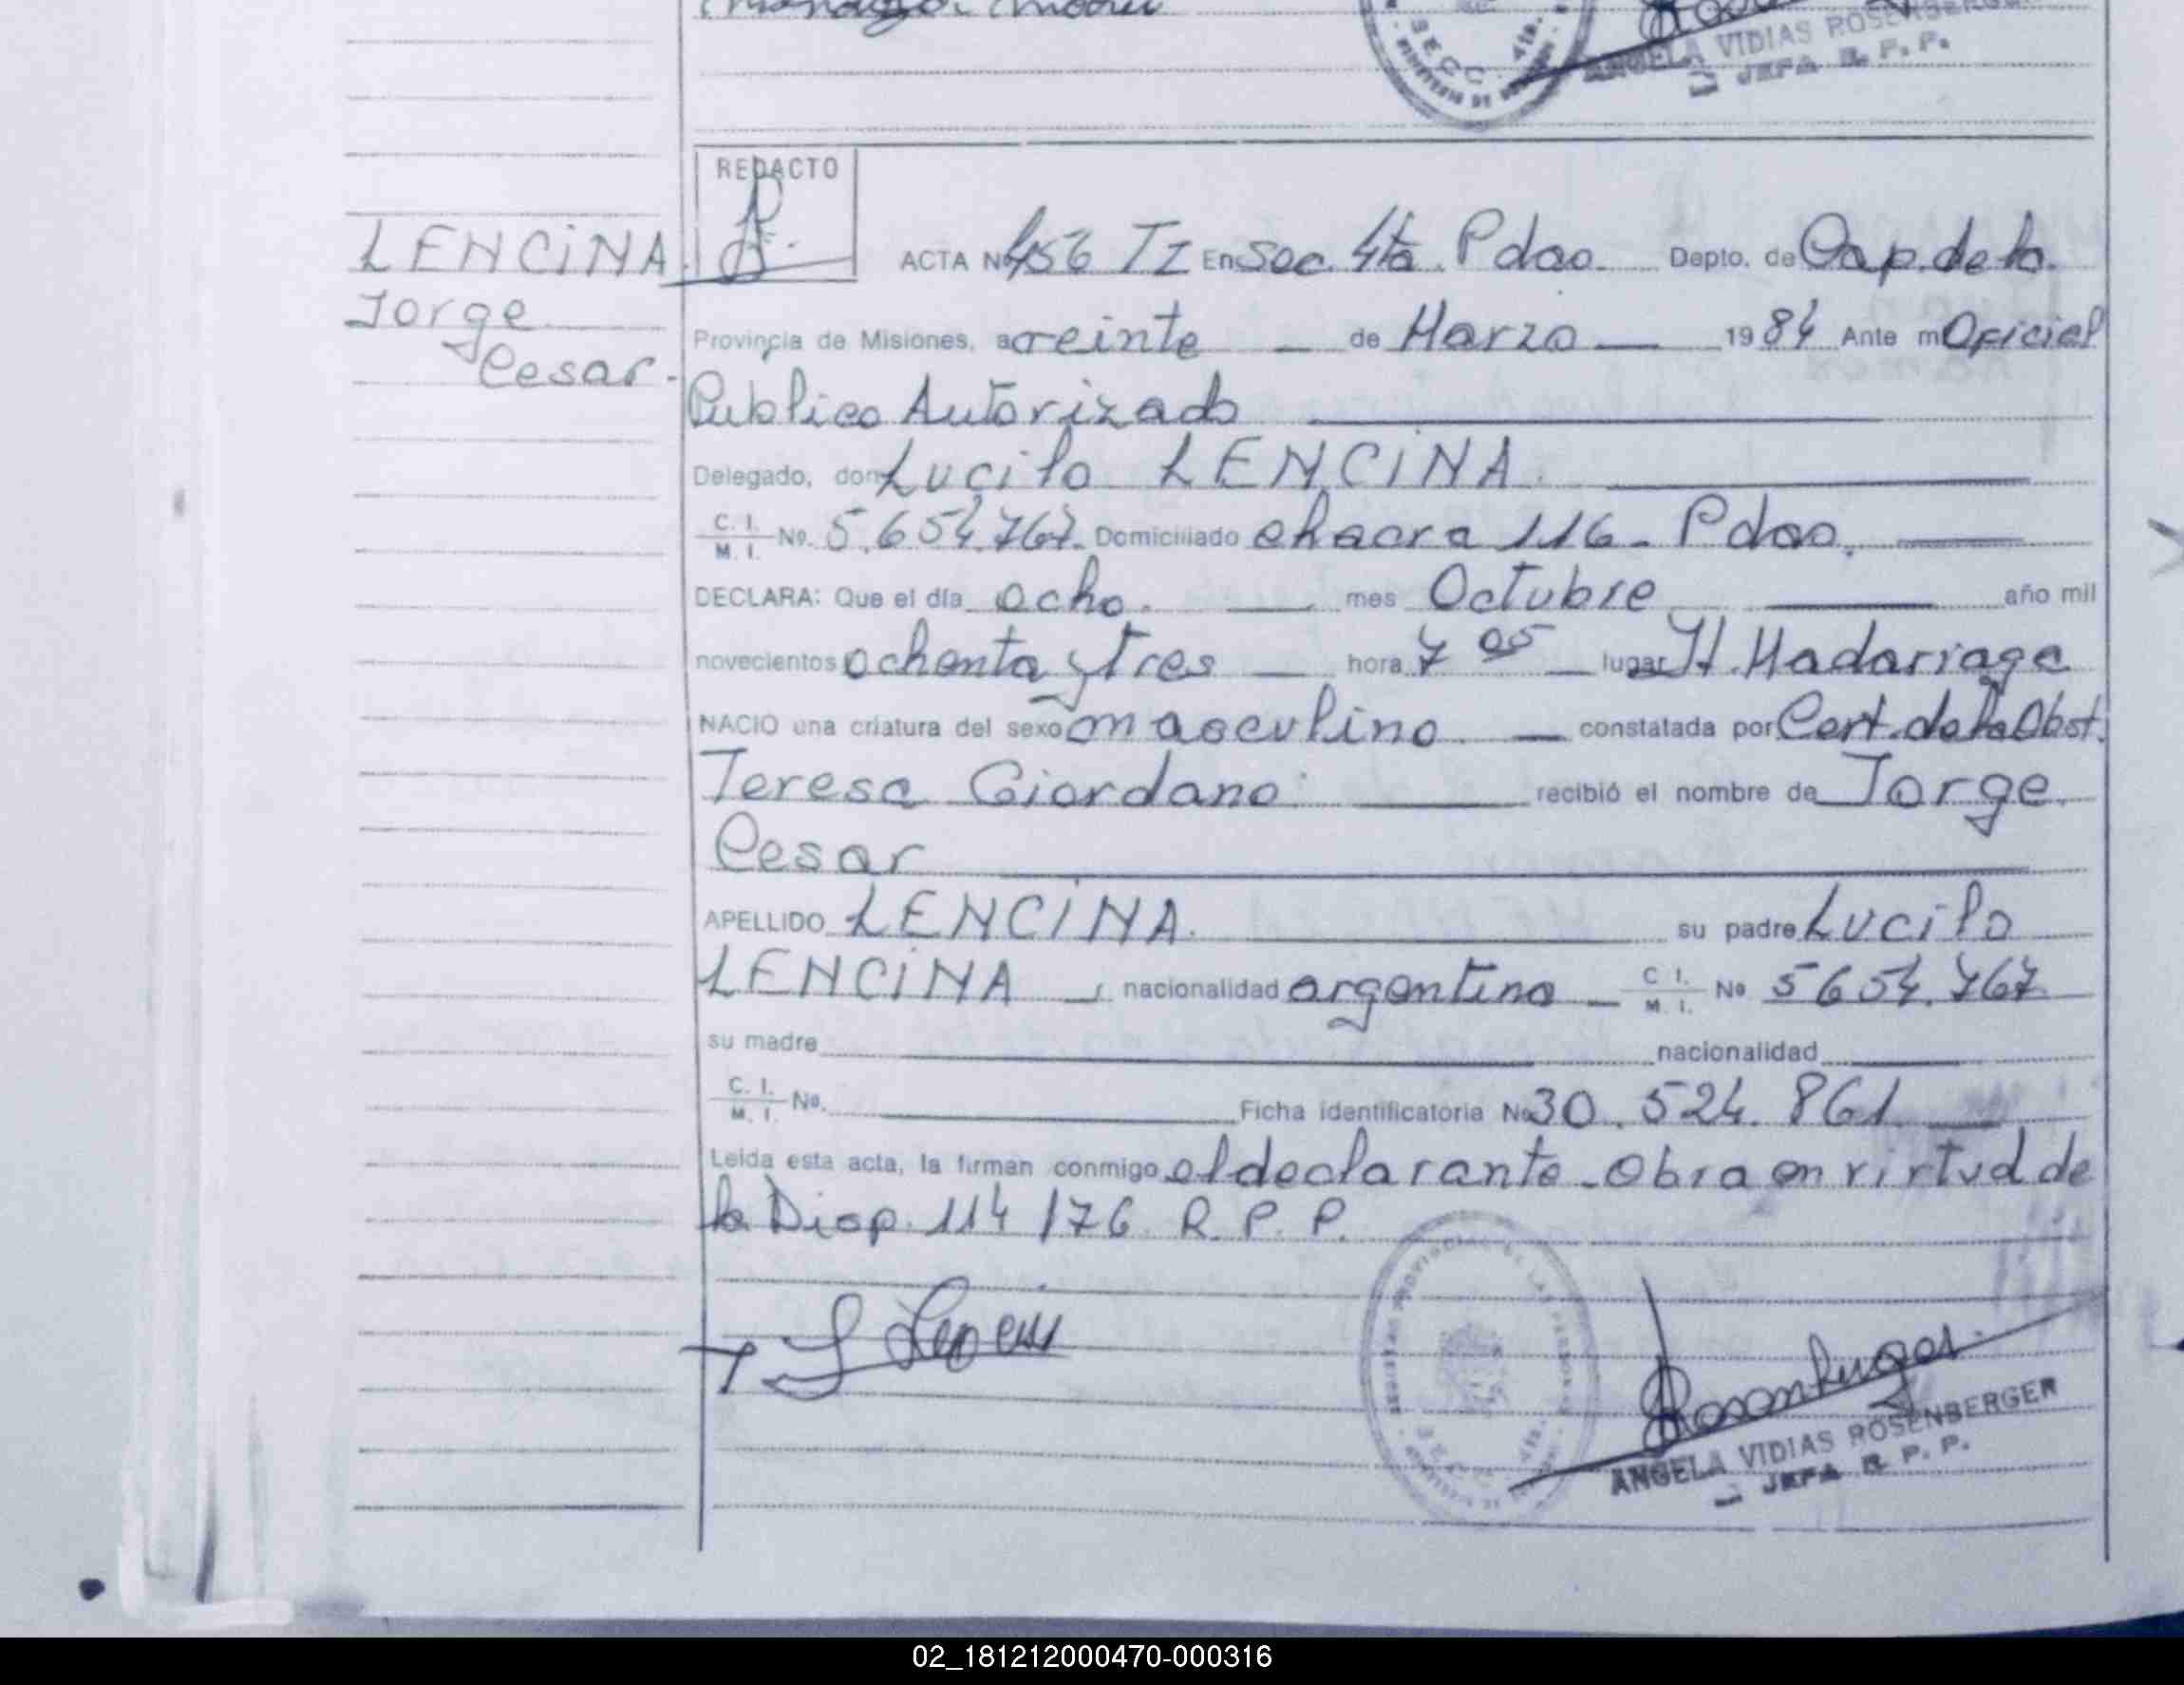 SECC. 4ta.
MINISTERIO DE
ANGELA VIDIAS ROSENBERGER
JEFA R. P. P.
REDACTO
LENCINA
Jorge
Cesar.-
ACTA Nº 456 TI En Sec. 4ta. Pdas. Depto. de Cap. de la
Provincia de Misiones, a veinte de Marzo 1984 Ante mi Oficial
Publico Autorizado
Delegado, don Lucilo LENCINA.
C. I.
M. I. Nº. 5.654.767. Domiciliado chacra 116 - Pdas.
DECLARA: Que el día ocho. mes Octubre año mil
novecientos ochenta y tres hora 7 05 lugar H. Madariaga
NACIO una criatura del sexo masculino constatada por Cert. de la Obst.
Teresa Giordano recibió el nombre de Jorge
Cesar
APELLIDO LENCINA. su padre Lucilo
LENCINA, nacionalidad argentina C I.
M. I. Nº 5654.767
su madre nacionalidad
C. I.
M. I. Nº. Ficha identificatoria Nº 30.524.861
Leida esta acta, la firman conmigo el declarante - Obra en virtud de
la Disp. 114/76 R. P. P.
Rosenberger
ANGELA VIDIAS ROSENBERGER
JEFA R. P. P.
02_181212000470-000316